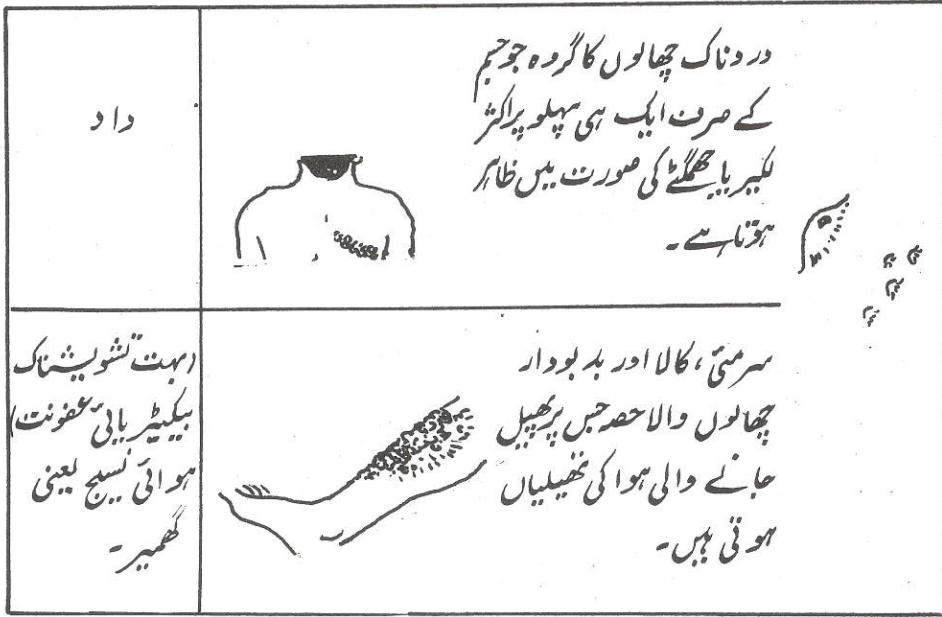 دردناک چھالوں کا گروہ جو جسم
کے صرف ایک ہی پہلو پر اکثر
لکیر یا جھمگٹے کی صورت میں ظاہر
ہوتا ہے۔
داد
سرمئی، کالا اور بدبودار
چھالوں والا حصہ جس پر پھیل
جانے والی ہوا کی تھیلیاں
ہوتی ہیں۔
(بہت تشویشناک
بیکٹیریائی عفونت)
ہوائی نسیج یعنی
گھمبیر۔